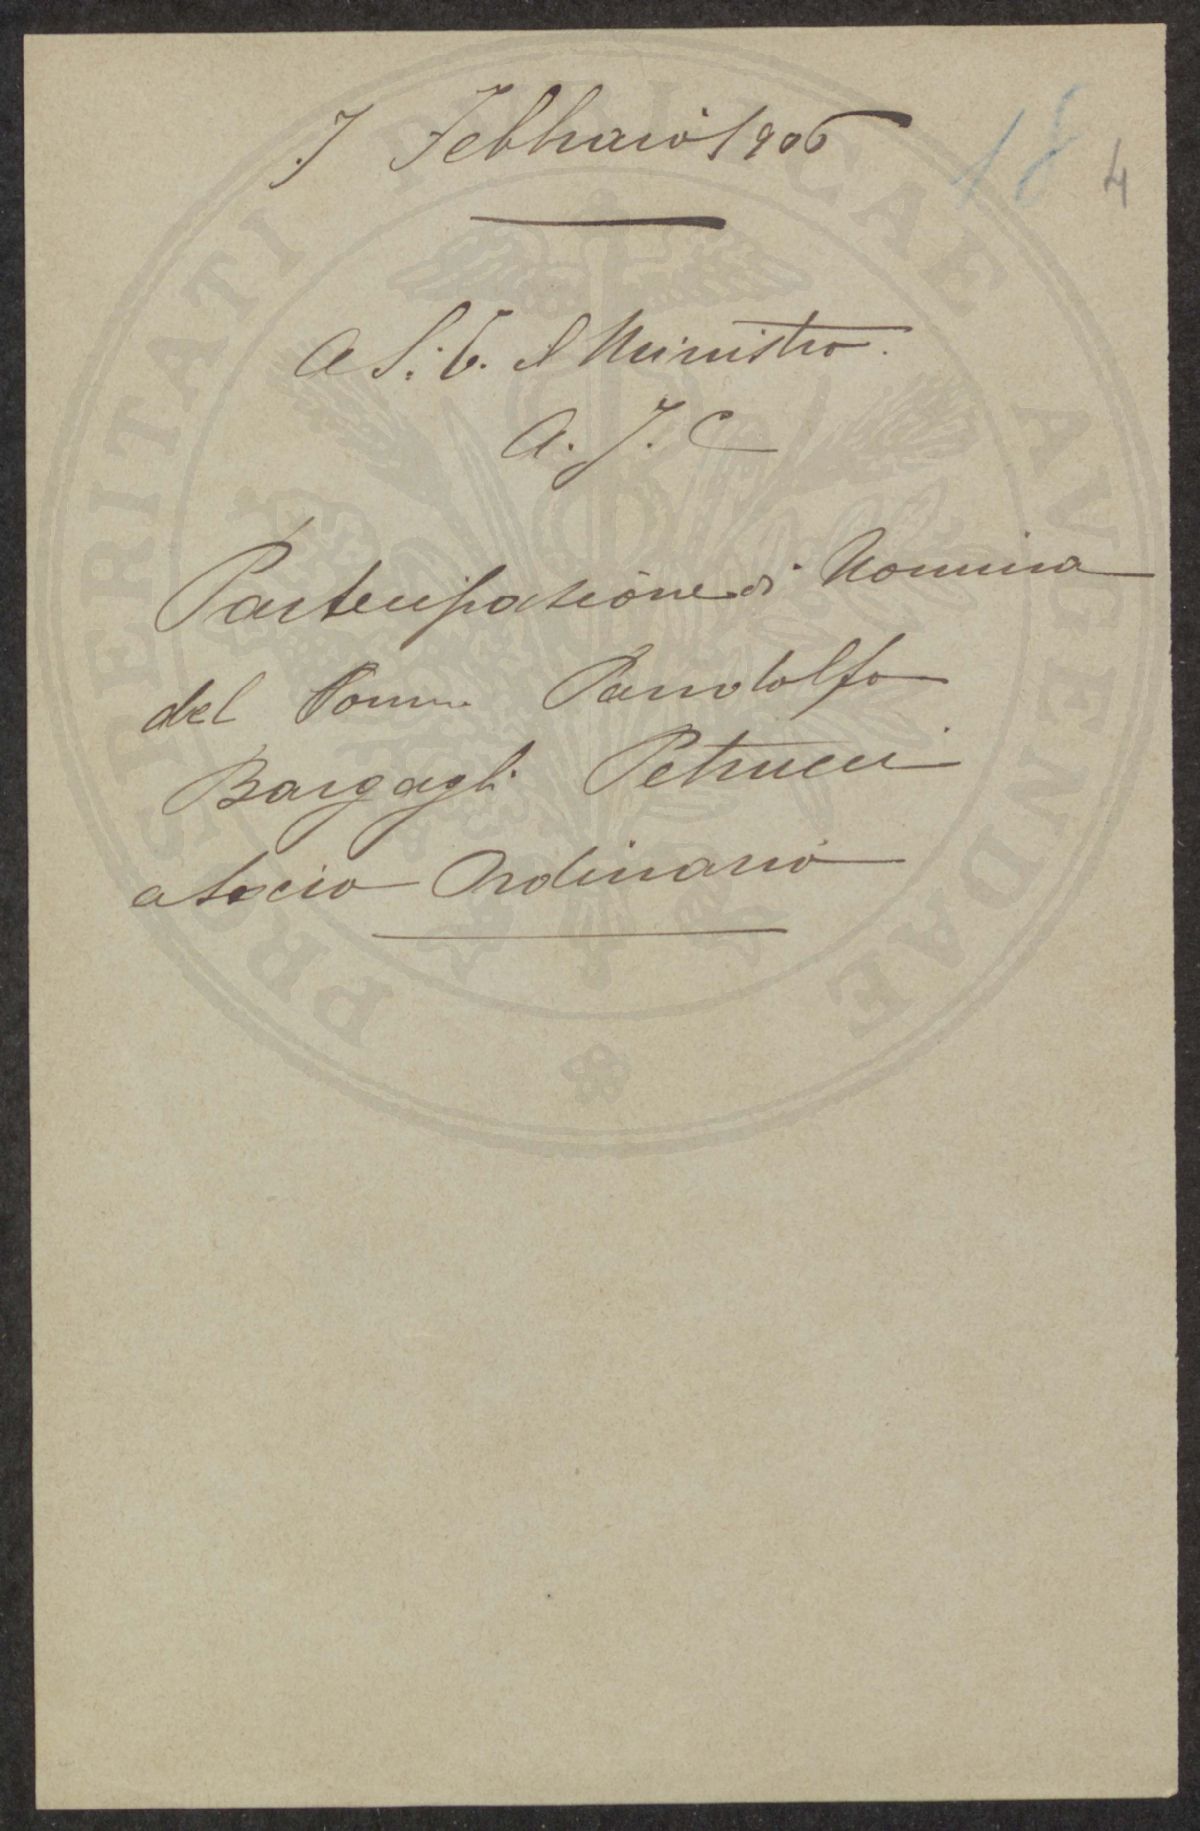 7 Febbraio 1906
18 4
A S. E. il Ministro.
A. I. C
Partecipazione di Nomina
del Comm. Pandolfo
Bargagli Petrucci
a Socio Ordinario
PROSPERITATI PUBLICAE AUGENDAE